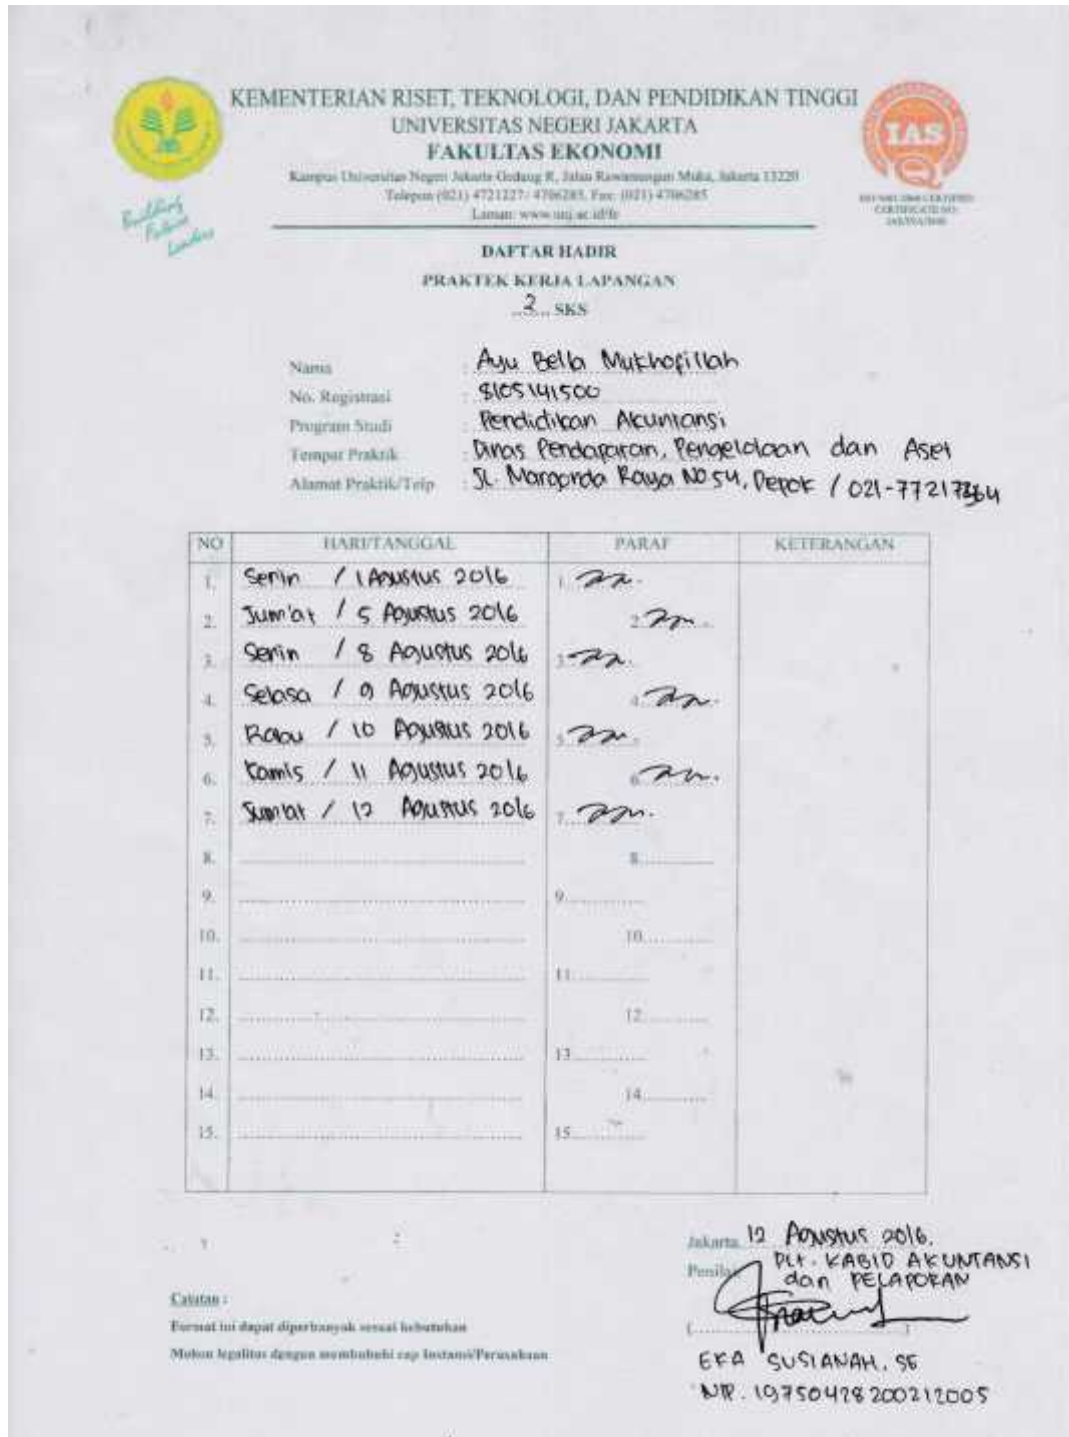 KEMENTERIAN RISET, TEKNOLOGI, DAN PENDIDIKAN TINGGI
UNIVERSITAS NEGERI JAKARTA
FAKULTAS EKONOMI
Kampus Universitas Negeri Jakarta Gedung R, Jalan Rawamangun Muka, Jakarta 13220
Telepon (021) 4721227/ 4706285, Fax: (021) 4706285
Laman: www.unj.ac.id/fe
Building
Future
Leaders
IAS
DAFTAR HADIR
PRAKTEK KERJA LAPANGAN
2 SKS
Nama : Ayu Bella Mukhofillah
No. Registrasi : 8105141500
Program Studi : Pendidikan Akuntansi
Tempat Praktik : Dinas Pendapatan, Pengelolaan dan Aset
Alamat Praktik/Telp : Jl. Margonda Raya No.54, Depok / 021-
NO HARI/TANGGAL PARAF KETERANGAN
1. Senin / 1 Agustus 2016 1.
2. Jum'at / 5 Agustus 2016 2.
3. Senin / 8 Agustus 2016 3.
4. Selasa / 9 Agustus 2016 4.
5. Rabu / 10 Agustus 2016 5.
6. Kamis / 11 Agustus 2016 6.
7. Jum'at / 12 Agustus 2016 7.
8. 8.
9. 9.
10. 10.
11. 11.
12. 12.
13. 13.
14. 14.
15. 15.
Jakarta, 12 Agustus 2016.
Penilai, Plt. KABID AKUNTANSI
dan PELAPORAN
Catatan :
Format ini dapat diperbanyak sesuai kebutuhan
Mohon legalitas dengan membubuhi cap Instansi/Perusahaan
EKA SUSIANAH, SE
NIP. 19750428200212005